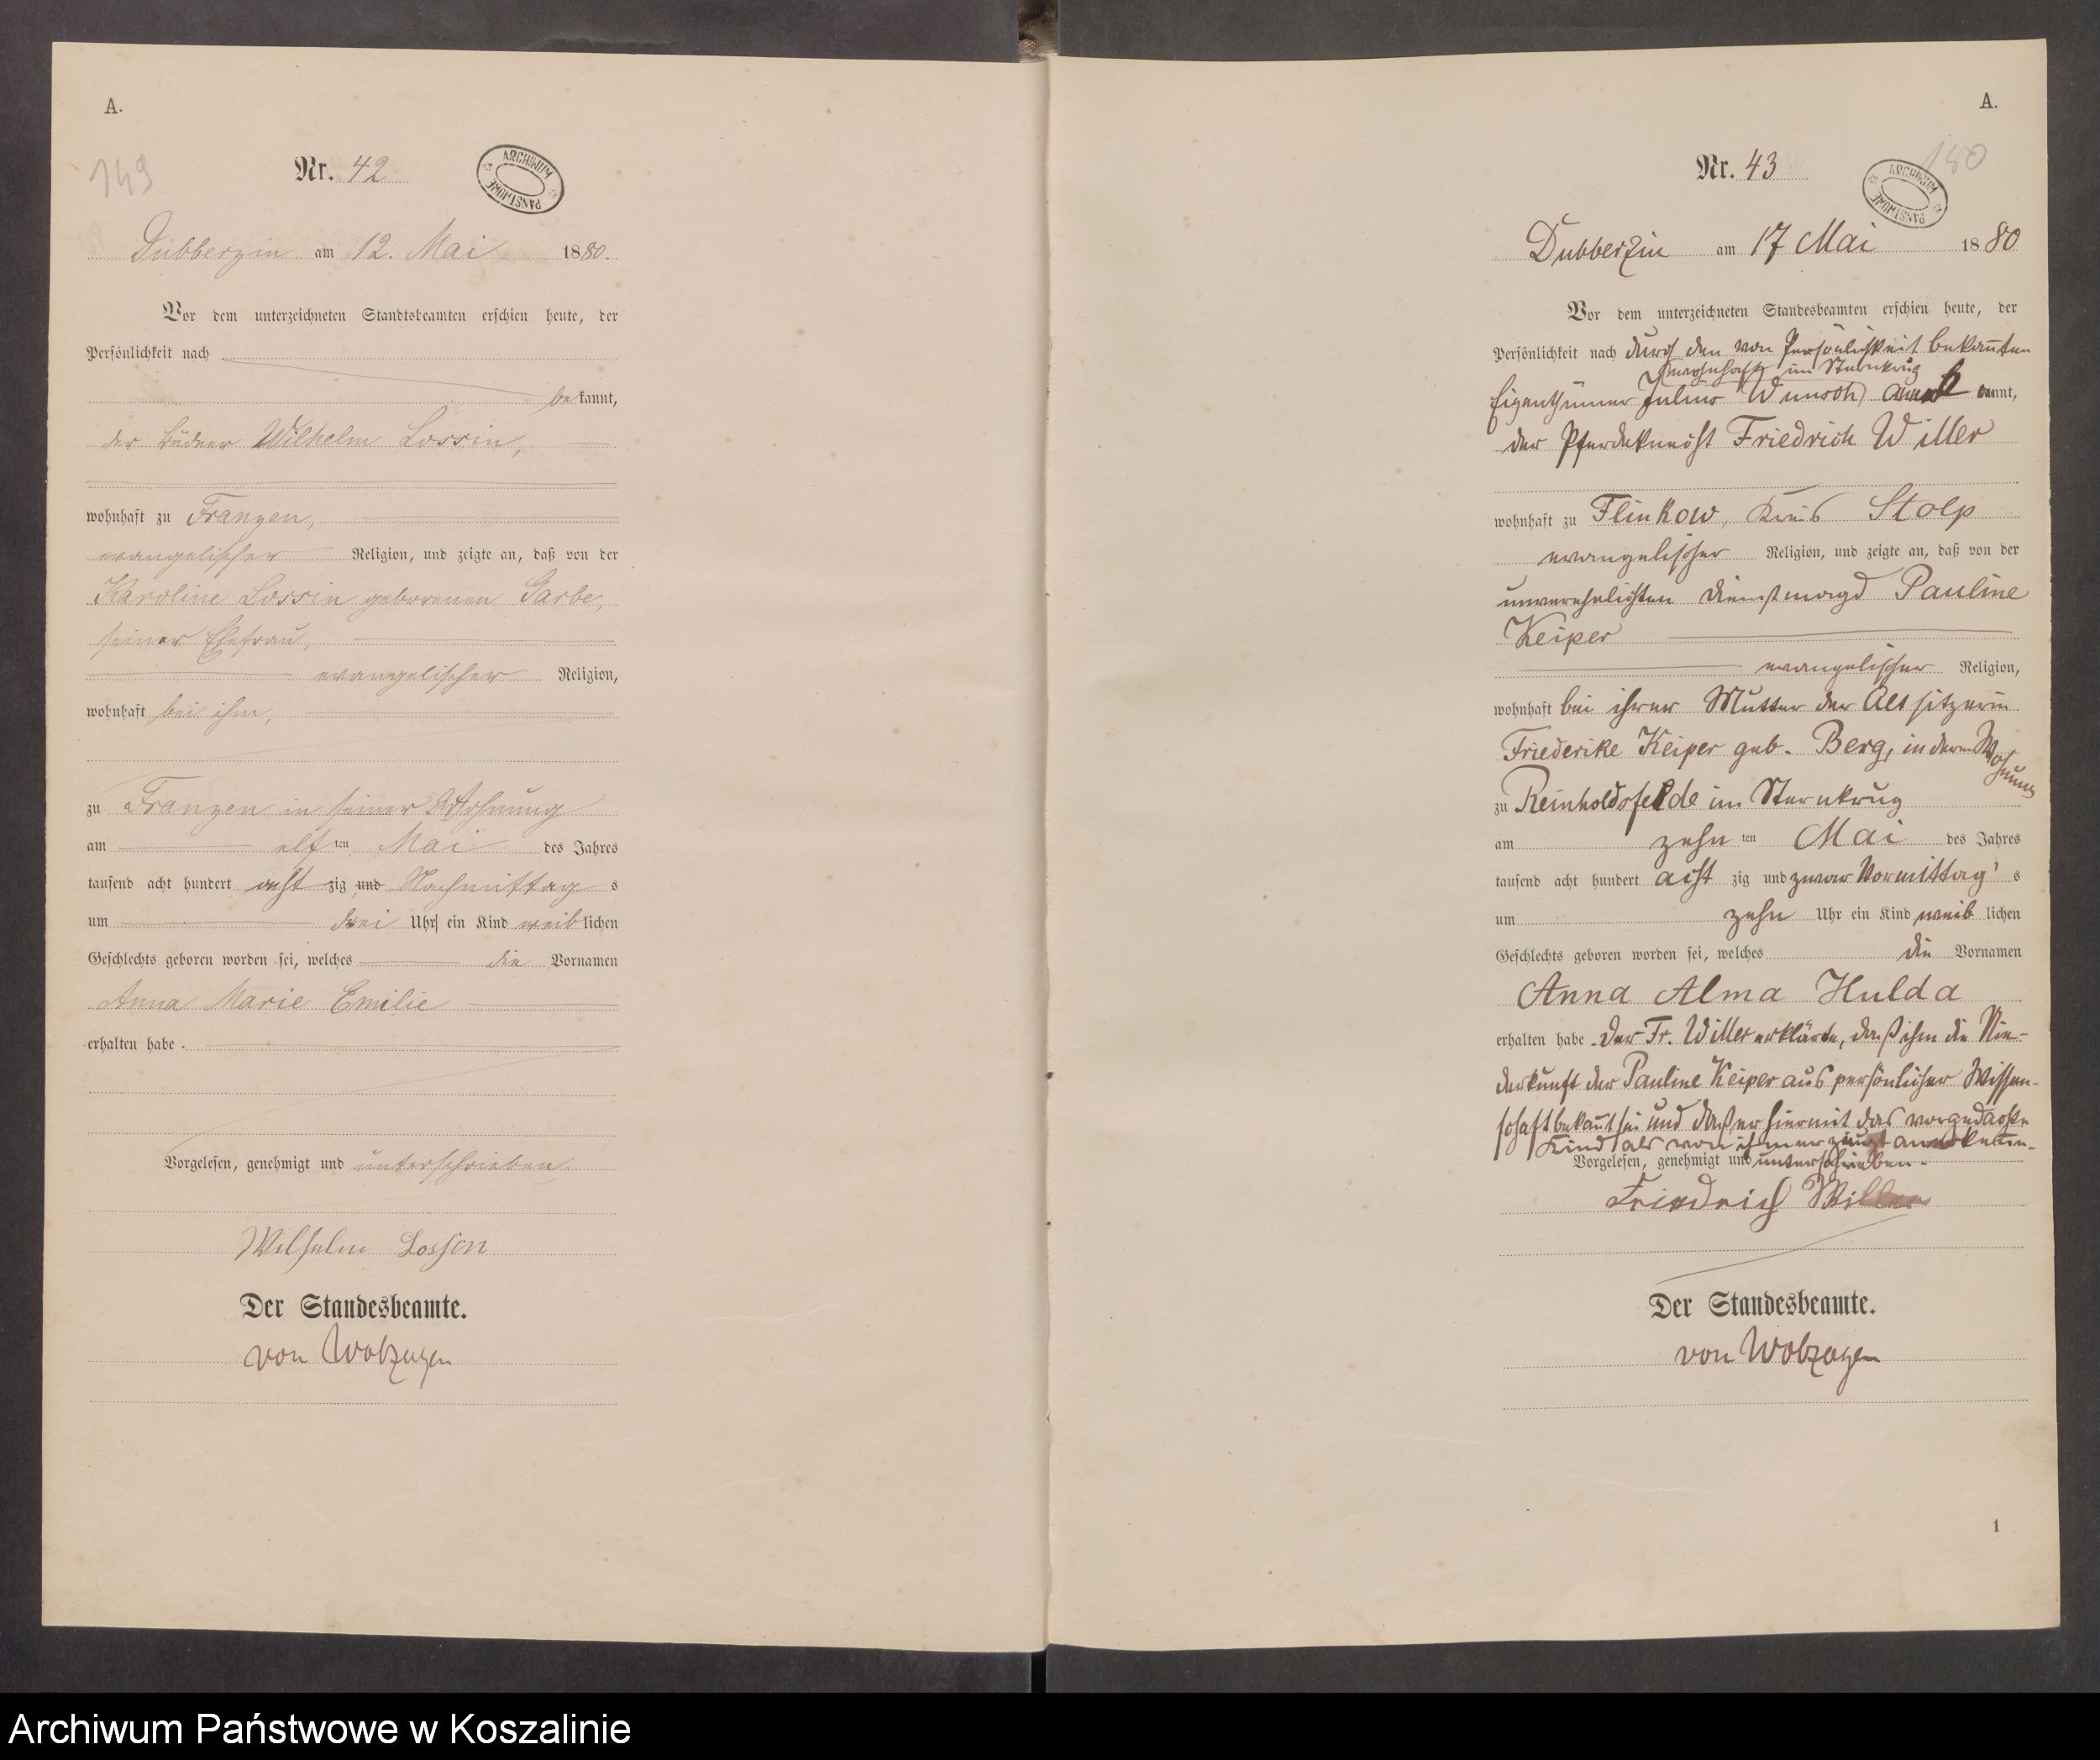 A.
149
Nr. 42
ARCHIWUM PAŃSTWOWE
Dubberzin am 12. Mai 1880.
Vor dem unterzeichneten Standtsbeamten erschien heute, der
Persönlichkeit nach
bekannt,
der Büdner Wilhelm Lossin,
wohnhaft zu Franzen,
evangelischer Religion, und zeigte an, daß von der
Karoline Lossin geborenen Garbe,
seiner Ehefrau,
evangelischer Religion,
wohnhaft bei ihm,
zu Franzen in seiner Wohnung
am elften Mai des Jahres
tausend acht hundert acht zig und Nachmittag s
um drei Uhr ein Kind weiblichen
Geschlechts geboren worden sei, welches die Vornamen
Anna Marie Emilie
erhalten habe.
Vorgelesen, genehmigt und unterschrieben.
Wilhelm Lossin
Der Standesbeamte.
von
A.
180
Nr. 43
ARCHIWUM PAŃSTWOWE
Dubberzin am 17 Mai 1880
Vor dem unterzeichneten Standesbeamten erschien heute, der
Persönlichkeit nach durch den von Persönlichkeit bekannten
wohnhaft im Sternkrug
Eigenthümer Julius Wunsch kannt,
der Pferdeknecht Friedrich Willer
wohnhaft zu Flinkow, Kreis Stolp
evangelischer Religion, und zeigte an, daß von der
unverehelichten Dienstmagd Pauline
Keiper
evangelischer Religion,
wohnhaft bei ihrer Mutter der Altsitzerin
Friederike Keiper geb. Berg, in deren Wohnung
zu Reinholdsfelde im Sternkrug
am zehn ten Mai des Jahres
tausend acht hundert acht zig und zwar Vormittag s
um zehn Uhr ein Kind weib lichen
Geschlechts geboren worden sei, welches die Vornamen
Anna Alma Hulda
erhalten habe. Der Fr. Willer erklärte, daß ihm die Nie-
derkunft der Pauline Keiper aus persönlicher Wissen-
schaft bekannt sei und daß er hiermit das vorgedachte
Kind als von ihm erzeugt anerkenne.
Vorgelesen, genehmigt und unterschrieben.
Friedrich Willer
Der Standesbeamte.
von
1
Archiwum Państwowe w Koszalinie